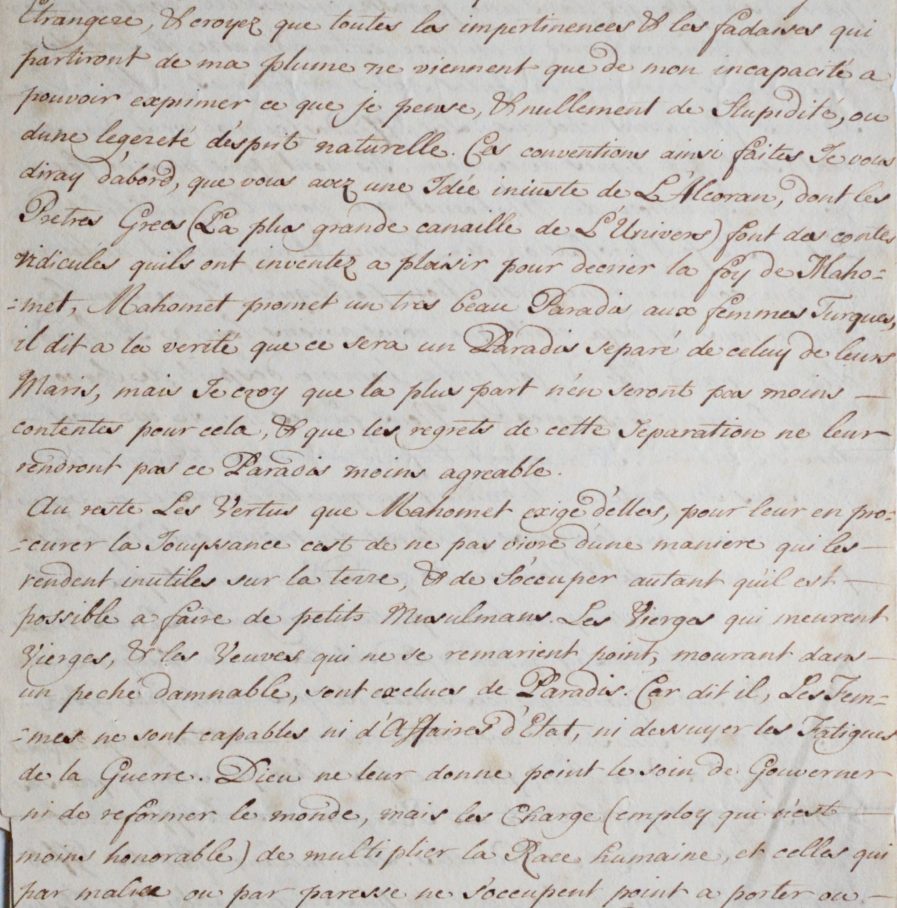 Etrangere, & croyez que toutes les impertinences & les fadaises qui
partiront de ma plume ne viennent que de mon incapacité a
pouvoir exprimer ce que je pense, & nullement de Stupidité, ou
dune legereté d'esprit naturelle. Ces conventions ainsi faites Je vous
diray d'abord, que vous avez une Idée iniuste de L'Alcoran, dont les
Pretres Grecs (La plus grande canaille de L'Univers) font des contes
ridicules quils ont inventez a plaisir pour decrier la foy de Maho=
=met, Mahomet promet un tres beau Paradis aux femmes Turques,
il dit a la verité que ce sera un Paradis separé de celuy de leurs
Maris, mais Je croy que la plus part n'en seront pas moins —
contentes pour cela, & que les regrets de cette Separation ne leur
rendront pas ce Paradis moins agreable.
Au reste Les Vertus que Mahomet exige d'elles, pour leur en pro=
=curer la Jouyssance cest de ne pas vivre d'une maniere qui les —
rendent inutiles sur la terre, & de S'occuper autant qu'il est —
possible a faire de petits Musulmans. Les Vierges qui meurent
Vierges, & les Veuves qui ne se remarient point, mourant dans —
un peché damnable, sont exclues de Paradis. Car dit il, Les Fem=
=mes ne sont capables ni d'Affaires d'Etat, ni dessuyer les Fatigues
de la Guerre. Dieu ne leur donne point le soin de Gouverner
ni de reformer le monde, mais les Charge (employ qui n'est —
moins honorable) de multiplier la Race humaine, et celles qui
par malice ou par paresse ne s'occupent point a porter ou —